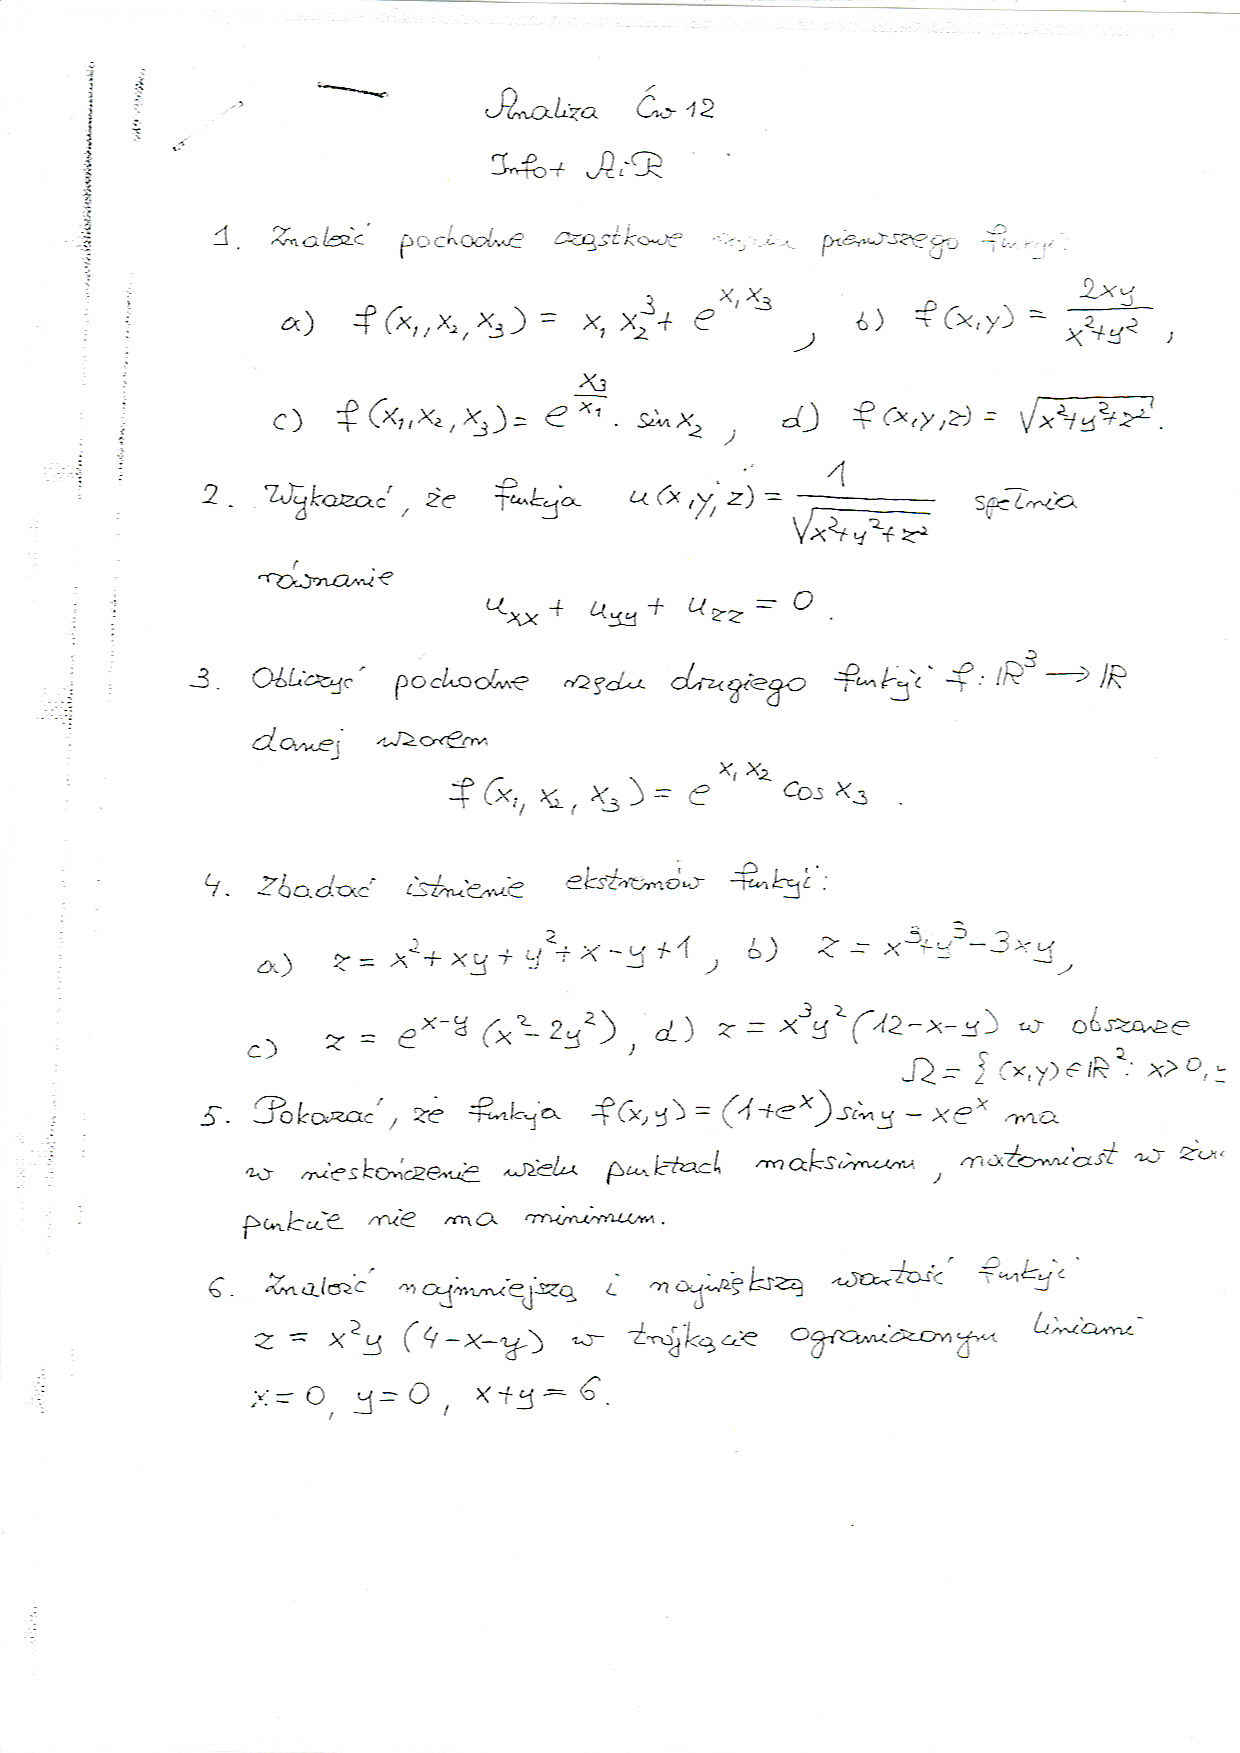 Analiza Ćw 12
Info+ AiR
1. Znaleźć pochodne cząstkowe rzędu pierwszego funkcji:
a) f(x₁, x₂, x₃) = x₁ x₂³ + e^{x₁x₃} , b) f(x,y) = \frac{2xy}{x²+y²} ,
c) f(x₁, x₂, x₃) = e^{\frac{x₃}{x₁}} · sin x₂ , d) f(x,y,z) = √(x²+y²+z²) .
2. Wykazać, że funkcja u(x,y,z) = \frac{1}{√(x²+y²+z²)} spełnia
równanie
u_{xx} + u_{yy} + u_{zz} = 0 .
3. Obliczyć pochodne rzędu drugiego funkcji f: ℝ³ → ℝ
danej wzorem
f(x₁, x₂, x₃) = e^{x₁x₂} cos x₃ .
4. Zbadać istnienie ekstremów funkcji:
a) z = x² + xy + y² + x - y + 1 , b) z = x³ + y³ - 3xy ,
c) z = e^{x-y} (x² - 2y²) , d) z = x³y² (12-x-y) w obszarze
Ω = { (x,y) ∈ ℝ² : x > 0,
5. Pokazać, że funkcja f(x,y) = (1+e^x) sin y - xe^x ma
w nieskończenie wielu punktach maksimum, natomiast w
punkcie nie ma minimum.
6. Znaleźć najmniejszą i największą wartość funkcji
z = x²y (4-x-y) w trójkącie ograniczonym liniami
x = 0, y = 0, x+y = 6.